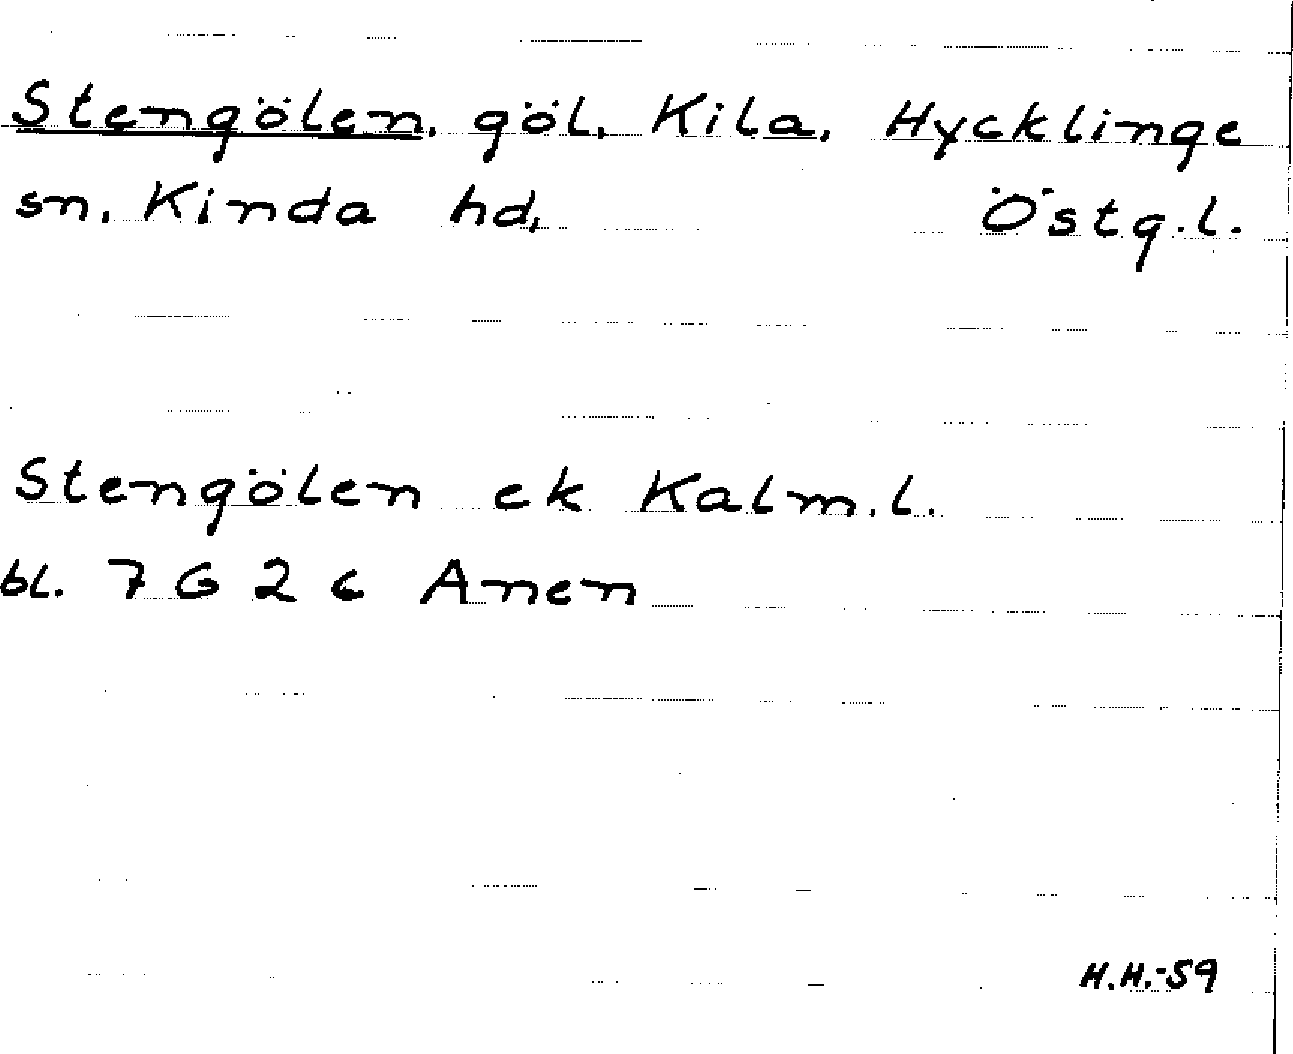 Stengölen, göl, Kila, Hycklinge
sn, Kinda hd, Östg.l.
Stengölen ek Kalm.l.
bl. 7 G 2 c Anen
H.H.-59